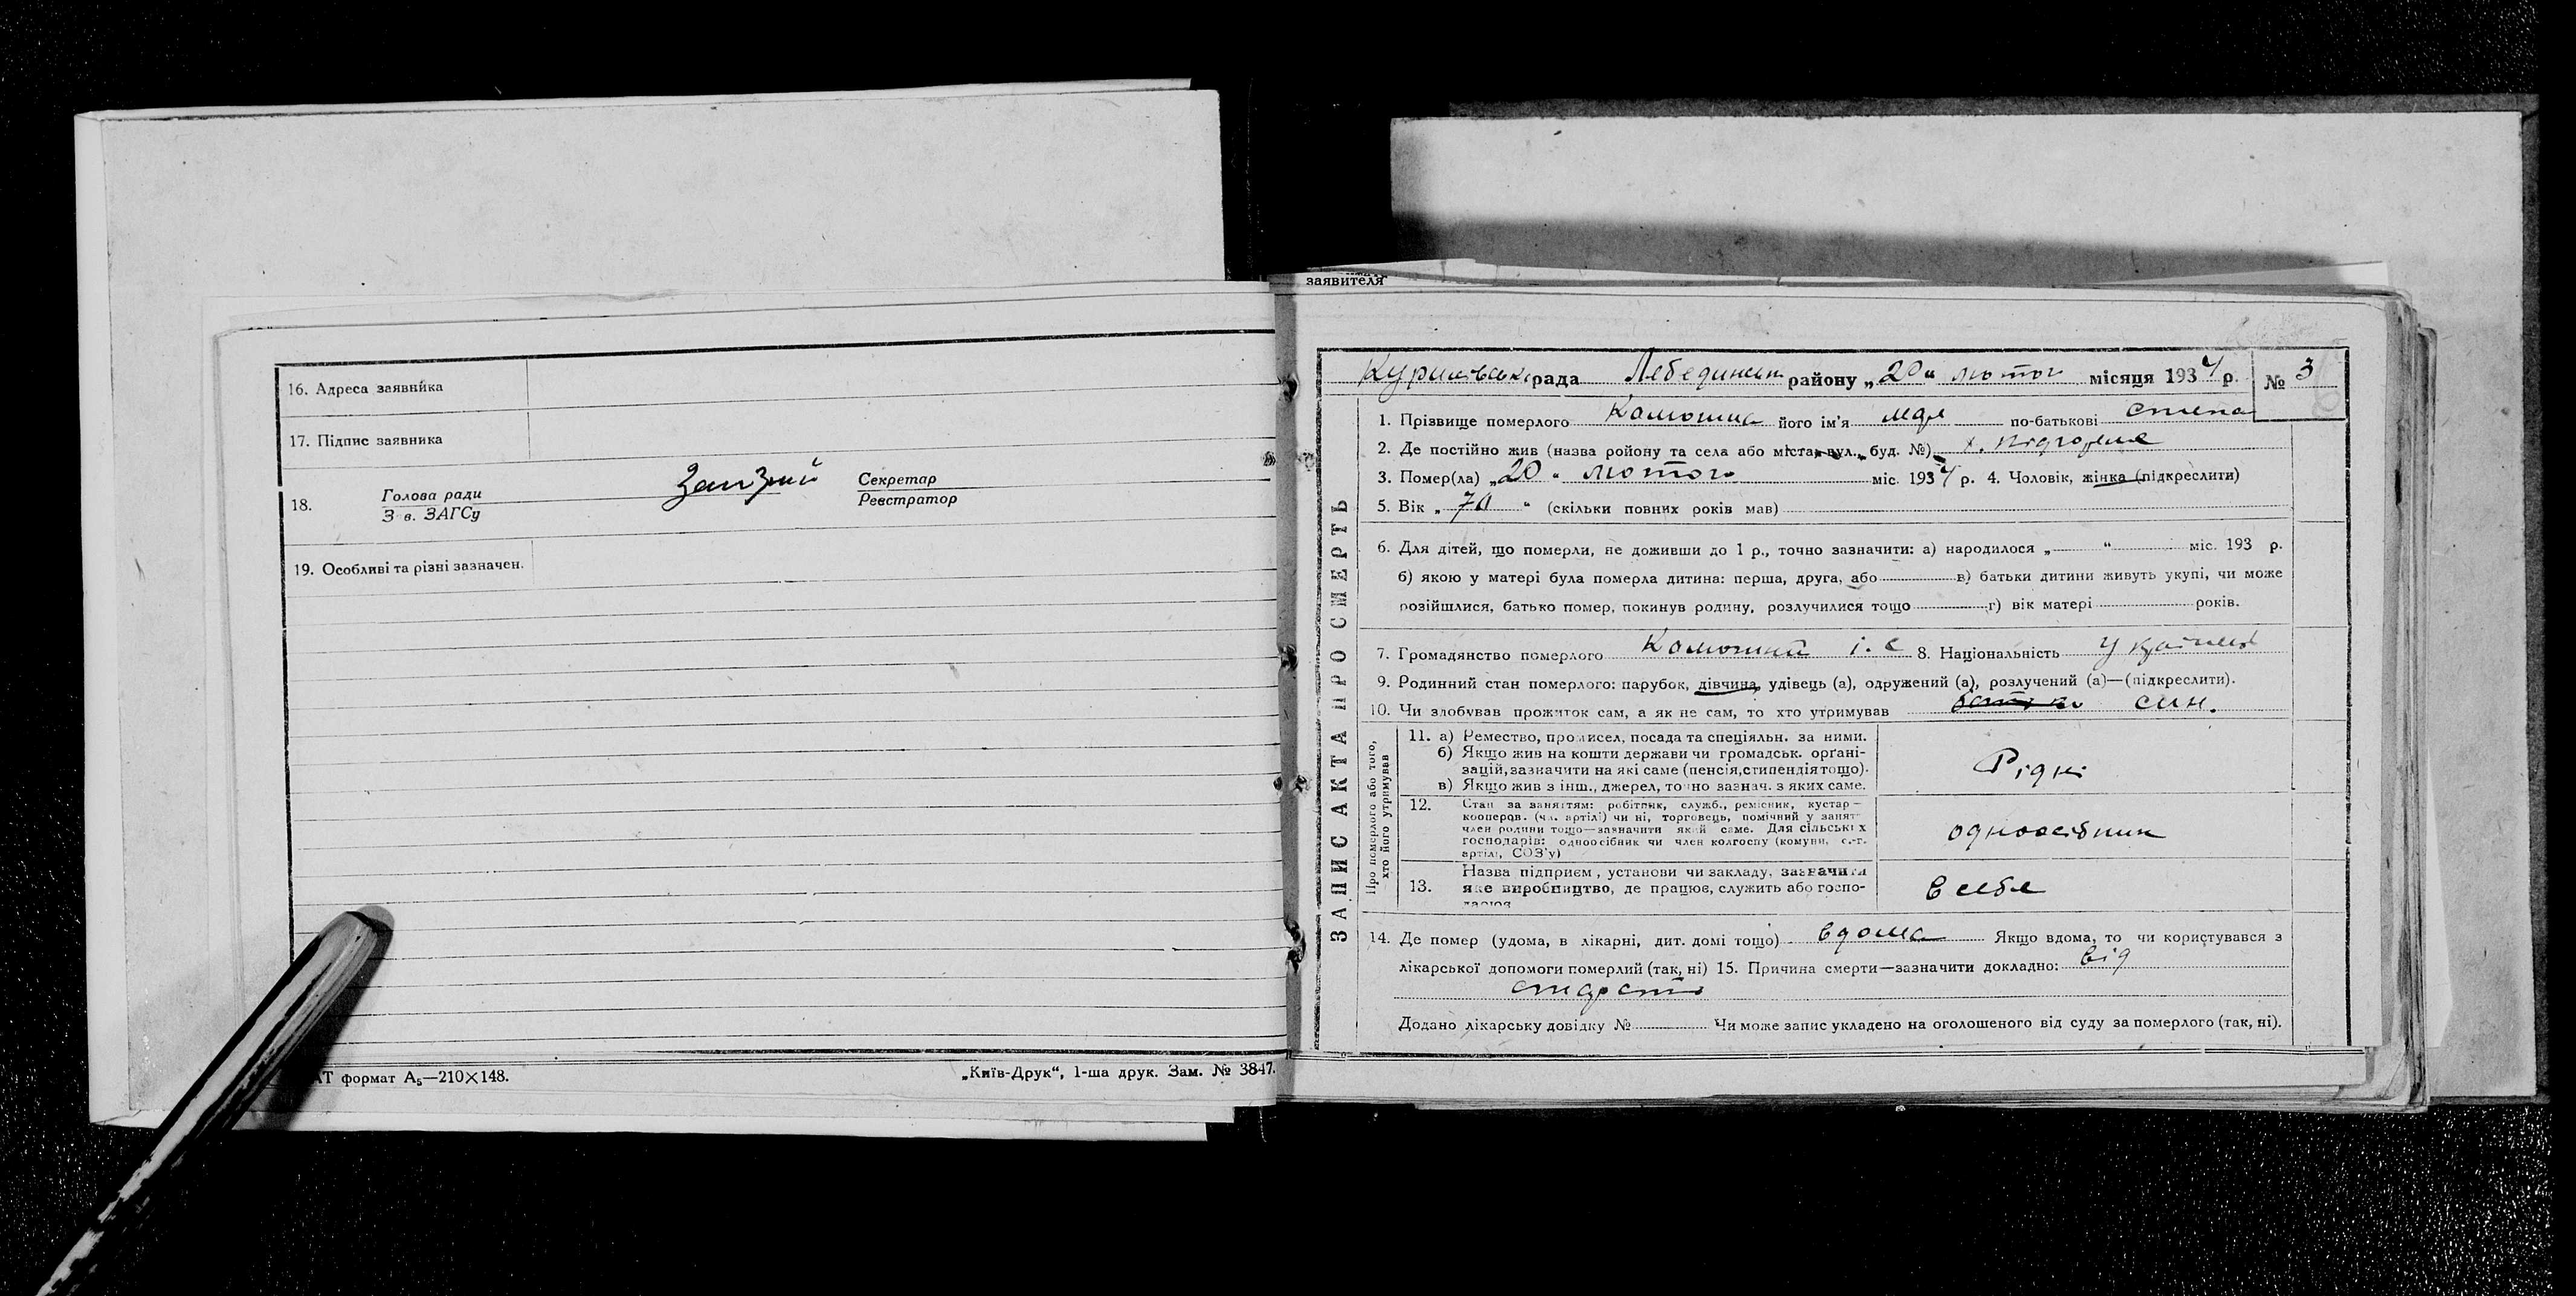 16. Адреса заявника
17. Підпис заявника
18. Голова ради
З в. ЗАГСу
Секретар
Реєстратор
19. Особливі та різні зазначен.
АТ формат А₅—210×148.
„Київ-Друк“, 1-ша друк. Зам. № 3847.
заявителя
рада Лебединськ району „20“ лютог місяця 1934 р. № 3
ЗАПИС АКТА ПРО СМЕРТЬ
1. Прізвище померлого його ім'я по-батькові
2. Де постійно жив (назва ройону та села або міста, вул., буд. №) х.
3. Помер(ла) „20“ лютого міс. 1934 р. 4. Чоловік, жінка (підкреслити)
5. Вік „70“ (скільки повних років мав)
6. Для дітей, що померли, не доживши до 1 р., точно зазначити: а) народилося „ “ міс. 193 р.
б) якою у матері була померла дитина: перша, друга, або в) батьки дитини живуть укупі, чи може
розійшлися, батько помер, покинув родину, розлучилися тощо г) вік матері років.
7. Громадянство померлого і. с 8. Національність
9. Родинний стан померлого: парубок, дівчина, удівець (а), одружений (а), розлучений (а)—(підкреслити).
10. Чи здобував прожиток сам, а як не сам, то хто утримував син.
Про померлого або того,
хто його утримував
11. а) Ремество, промисел, посада та спеціяльн. за ними.
б) Якщо жив на кошти держави чи громадськ. орґані-
зацій, зазначити на які саме (пенсія, стипендія тощо).
в) Якщо жив з інш., джерел, точно зазнач. з яких саме.
Рідні
12. Стан за заняттям: робітник, служб., ремісник, кустар—
кооперов. (чл. артілі) чи ні, торговець, помічний у занят.
член родини тощо—зазначити який саме. Для сільських
господарів: одноосібник чи член колгоспу (комуни, с.-г.
артілі, СОЗ'у)
одноосібник
13. Назва підприєм, установи чи закладу, зазначити
яке виробництво, де працює, служить або госпо-
дарює
в себе
14. Де помер (удома, в лікарні, дит. домі тощо) вдома Якщо вдома, то чи користувався з
лікарської допомоги померлий (так, ні) 15. Причина смерти—зазначити докладно: від
старости
Додано лікарську довідку № Чи може запис укладено на оголошеного від суду за померлого (так, ні).